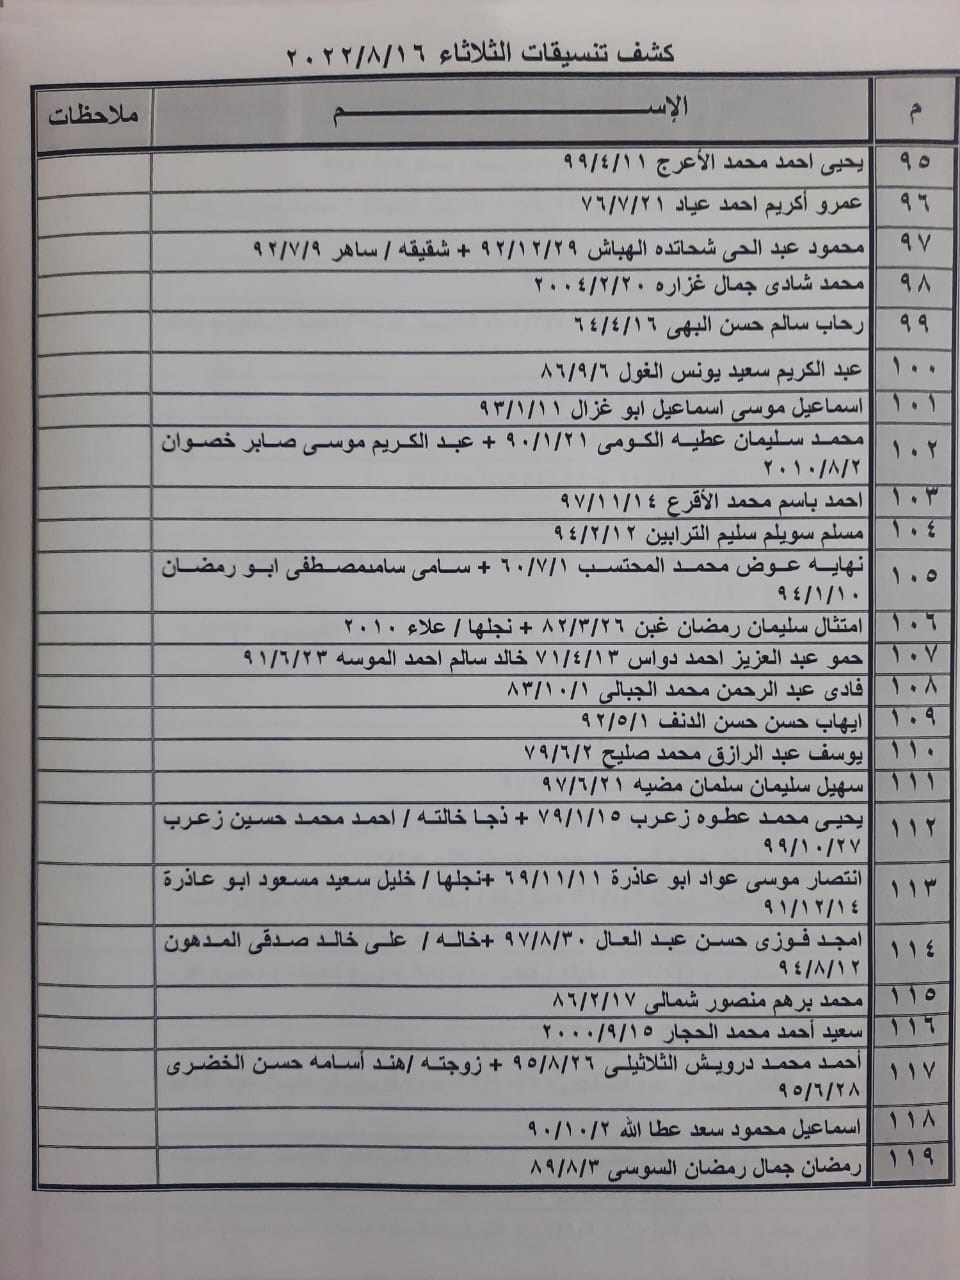 كشف تنسيقات الثلاثاء ٢٠٢٢/٨/١٦
م الإســـــــــــــم ملاحظات
٩٥ يحيى احمد محمد الأعرج ٩٩/٤/١١
٩٦ عمرو أكريم احمد عياد ٧٦/٧/٢١
٩٧ محمود عبد الحى شحاتده الهباش ٩٢/١٢/٢٩ + شقيقه / ساهر ٩٢/٧/٩
٩٨ محمد شادى جمال غزاره ٢٠٠٤/٢/٢٠
٩٩ رحاب سالم حسن البهى ٦٤/٤/١٦
١٠٠ عبد الكريم سعيد يونس الغول ٨٦/٩/٦
١٠١ اسماعيل موسى اسماعيل ابو غزال ٩٣/١/١١
١٠٢ محمد سليمان عطيه الكومى ٩٠/١/٢١ + عبد الكريم موسى صابر خصوان
٢٠١٠/٨/٢
١٠٣ احمد باسم محمد الأقرع ٩٧/١١/١٤
١٠٤ مسلم سويلم سليم الترابين ٩٤/٢/١٢
١٠٥ نهايه عوض محمد المحتسب ٦٠/٧/١ + سامى سامىمصطفى ابو رمضان
٩٤/١/١٠
١٠٦ امتثال سليمان رمضان غبن ٨٢/٣/٢٦ + نجلها / علاء ٢٠١٠
١٠٧ حمو عبد العزيز احمد دواس ٧١/٤/١٣ خالد سالم احمد الموسه ٩١/٦/٢٣
١٠٨ فادى عبد الرحمن محمد الجبالى ٨٣/١٠/١
١٠٩ ايهاب حسن حسن الدنف ٩٢/٥/١
١١٠ يوسف عبد الرازق محمد صليح ٧٩/٦/٢
١١١ سهيل سليمان سلمان مضيه ٩٧/٦/٢١
١١٢ يحيى محمد عطوه زعرب ٧٩/١/١٥ + ذجا خالته / احمد محمد حسين زعرب
٩٩/١٠/٢٧
١١٣ انتصار موسى عواد ابو عاذرة ٦٩/١١/١١ +نجلها / خليل سعيد مسعود ابو عاذرة
٩١/١٢/١٤
١١٤ امجد فوزى حسن عبد العال ٩٧/٨/٣٠ +خاله / على خالد صدقى المدهون
٩٤/٨/١٢
١١٥ محمد برهم منصور شمالى ٨٦/٢/١٧
١١٦ سعيد أحمد محمد الحجار ٢٠٠٠/٩/١٥
١١٧ أحمد محمد درويش الثلاثيلى ٩٥/٨/٢٦ + زوجته /هند أسامه حسن الخضرى
٩٥/٦/٢٨
١١٨ اسماعيل محمود سعد عطا الله ٩٠/١٠/٢
١١٩ رمضان جمال رمضان السوسى ٨٩/٨/٣